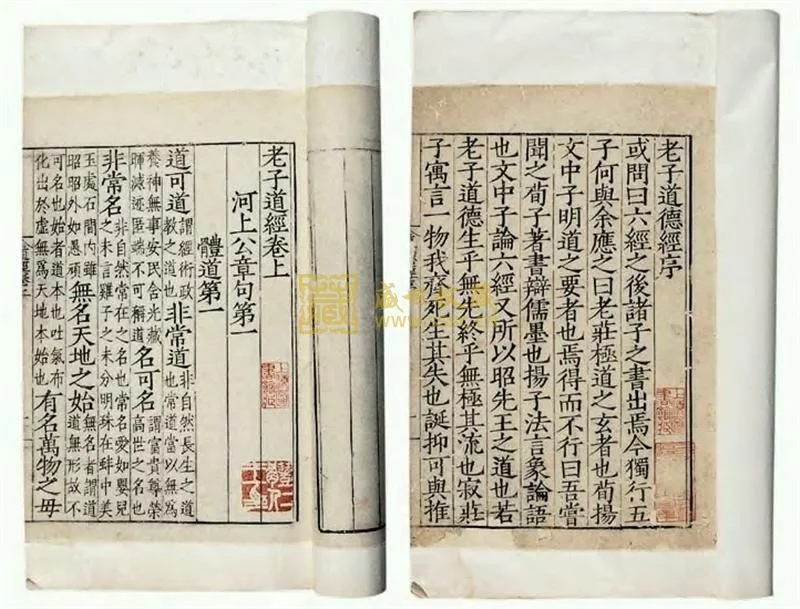 老子道德經序
或問曰六經之後諸子之書出焉今獨行五
子何與余應之曰老莊極道之玄者也荀揚
文中子明道之要者也焉得而不行曰吾嘗
聞之荀子著書辯儒墨也揚子法言象論語
也文中子論六經又所以昭先王之道也若
老子道德生乎無先終乎無極其流也寂莊
子寓言一物我齊死生其失也誕抑可與推
老子道經卷上
河上公章句第一
體道第一
道可道謂經術政教之道也非常道非自然長生之道也常道當以無爲
養神無事安民含光藏暉滅迹匿端不可稱道名可名謂富貴尊榮高世之名也
非常名非自然常在之名也常名愛如嬰兒之未言雞子之未分明珠在蚌中美
玉處石間內雖昭昭外如愚頑無名天地之始無名者謂道道無形故不
可名也始者道本也吐氣布化出於虛無爲天地本始也有名萬物之母